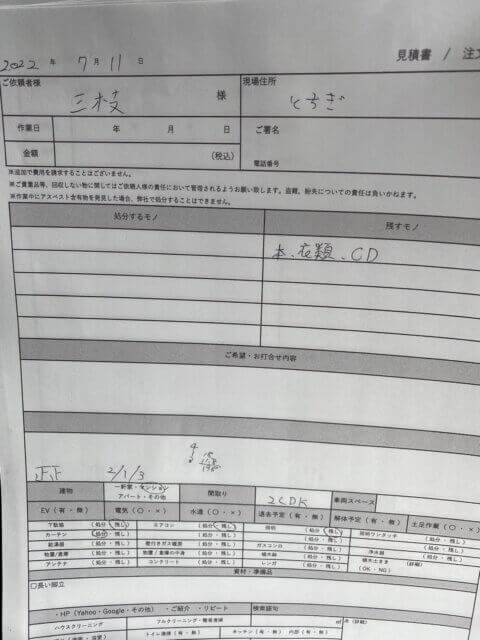 2022年 7月 11日
見積書 / 注文
ご依頼者様
三枝 様
現場住所
とちぎ
作業日 年 月 日
ご署名
金額 (税込)
電話番号
※追加で費用を請求することはございません。
※ご貴重品等、回収しない物に関してはご依頼人様の責任において管理されるようお願い致します。盗難、紛失についての責任は負いかねます。
※作業中にアスベスト含有物を発見した場合、弊社で処分することはできません。
処分するモノ 残すモノ
本、衣類、CD
ご希望・お打合せ内容
正正 2/1/3
建物 一軒家・マンション
アパート・その他
間取り 2LDK 車両スペース
EV(有・無) 電気(〇・×) 水道(〇・×) 退去予定(有・無) 解体予定(有・無) 土足作業(〇・
下駄箱 (処分・残し) エアコン (処分・残し) 照明 (処分・残し) 照明ワンタッチ
カーテン (処分・残し) (処分・残し) (処分・残し)
給湯器 (処分・残し) 壁付きガス暖房 (処分・残し) ガスコンロ (処分・残し) 浄水器
物置/倉庫 (処分・残し) 物置/倉庫の中身 (処分・残し) 植木鉢 (処分・残し) 植木土まき (詳細)
アンテナ (処分・残し) コンクリート (処分・残し) レンガ (処分・残し) (OK・NG)
資材・準備品
□長い脚立
・HP(Yahoo・Google・その他) ・ご紹介 ・リピート 検索語句
ハウスクリーニング
フルクリーニング・簡易清掃
トイレ清掃(有・無) キッチン(有・無) 内部(有・無)